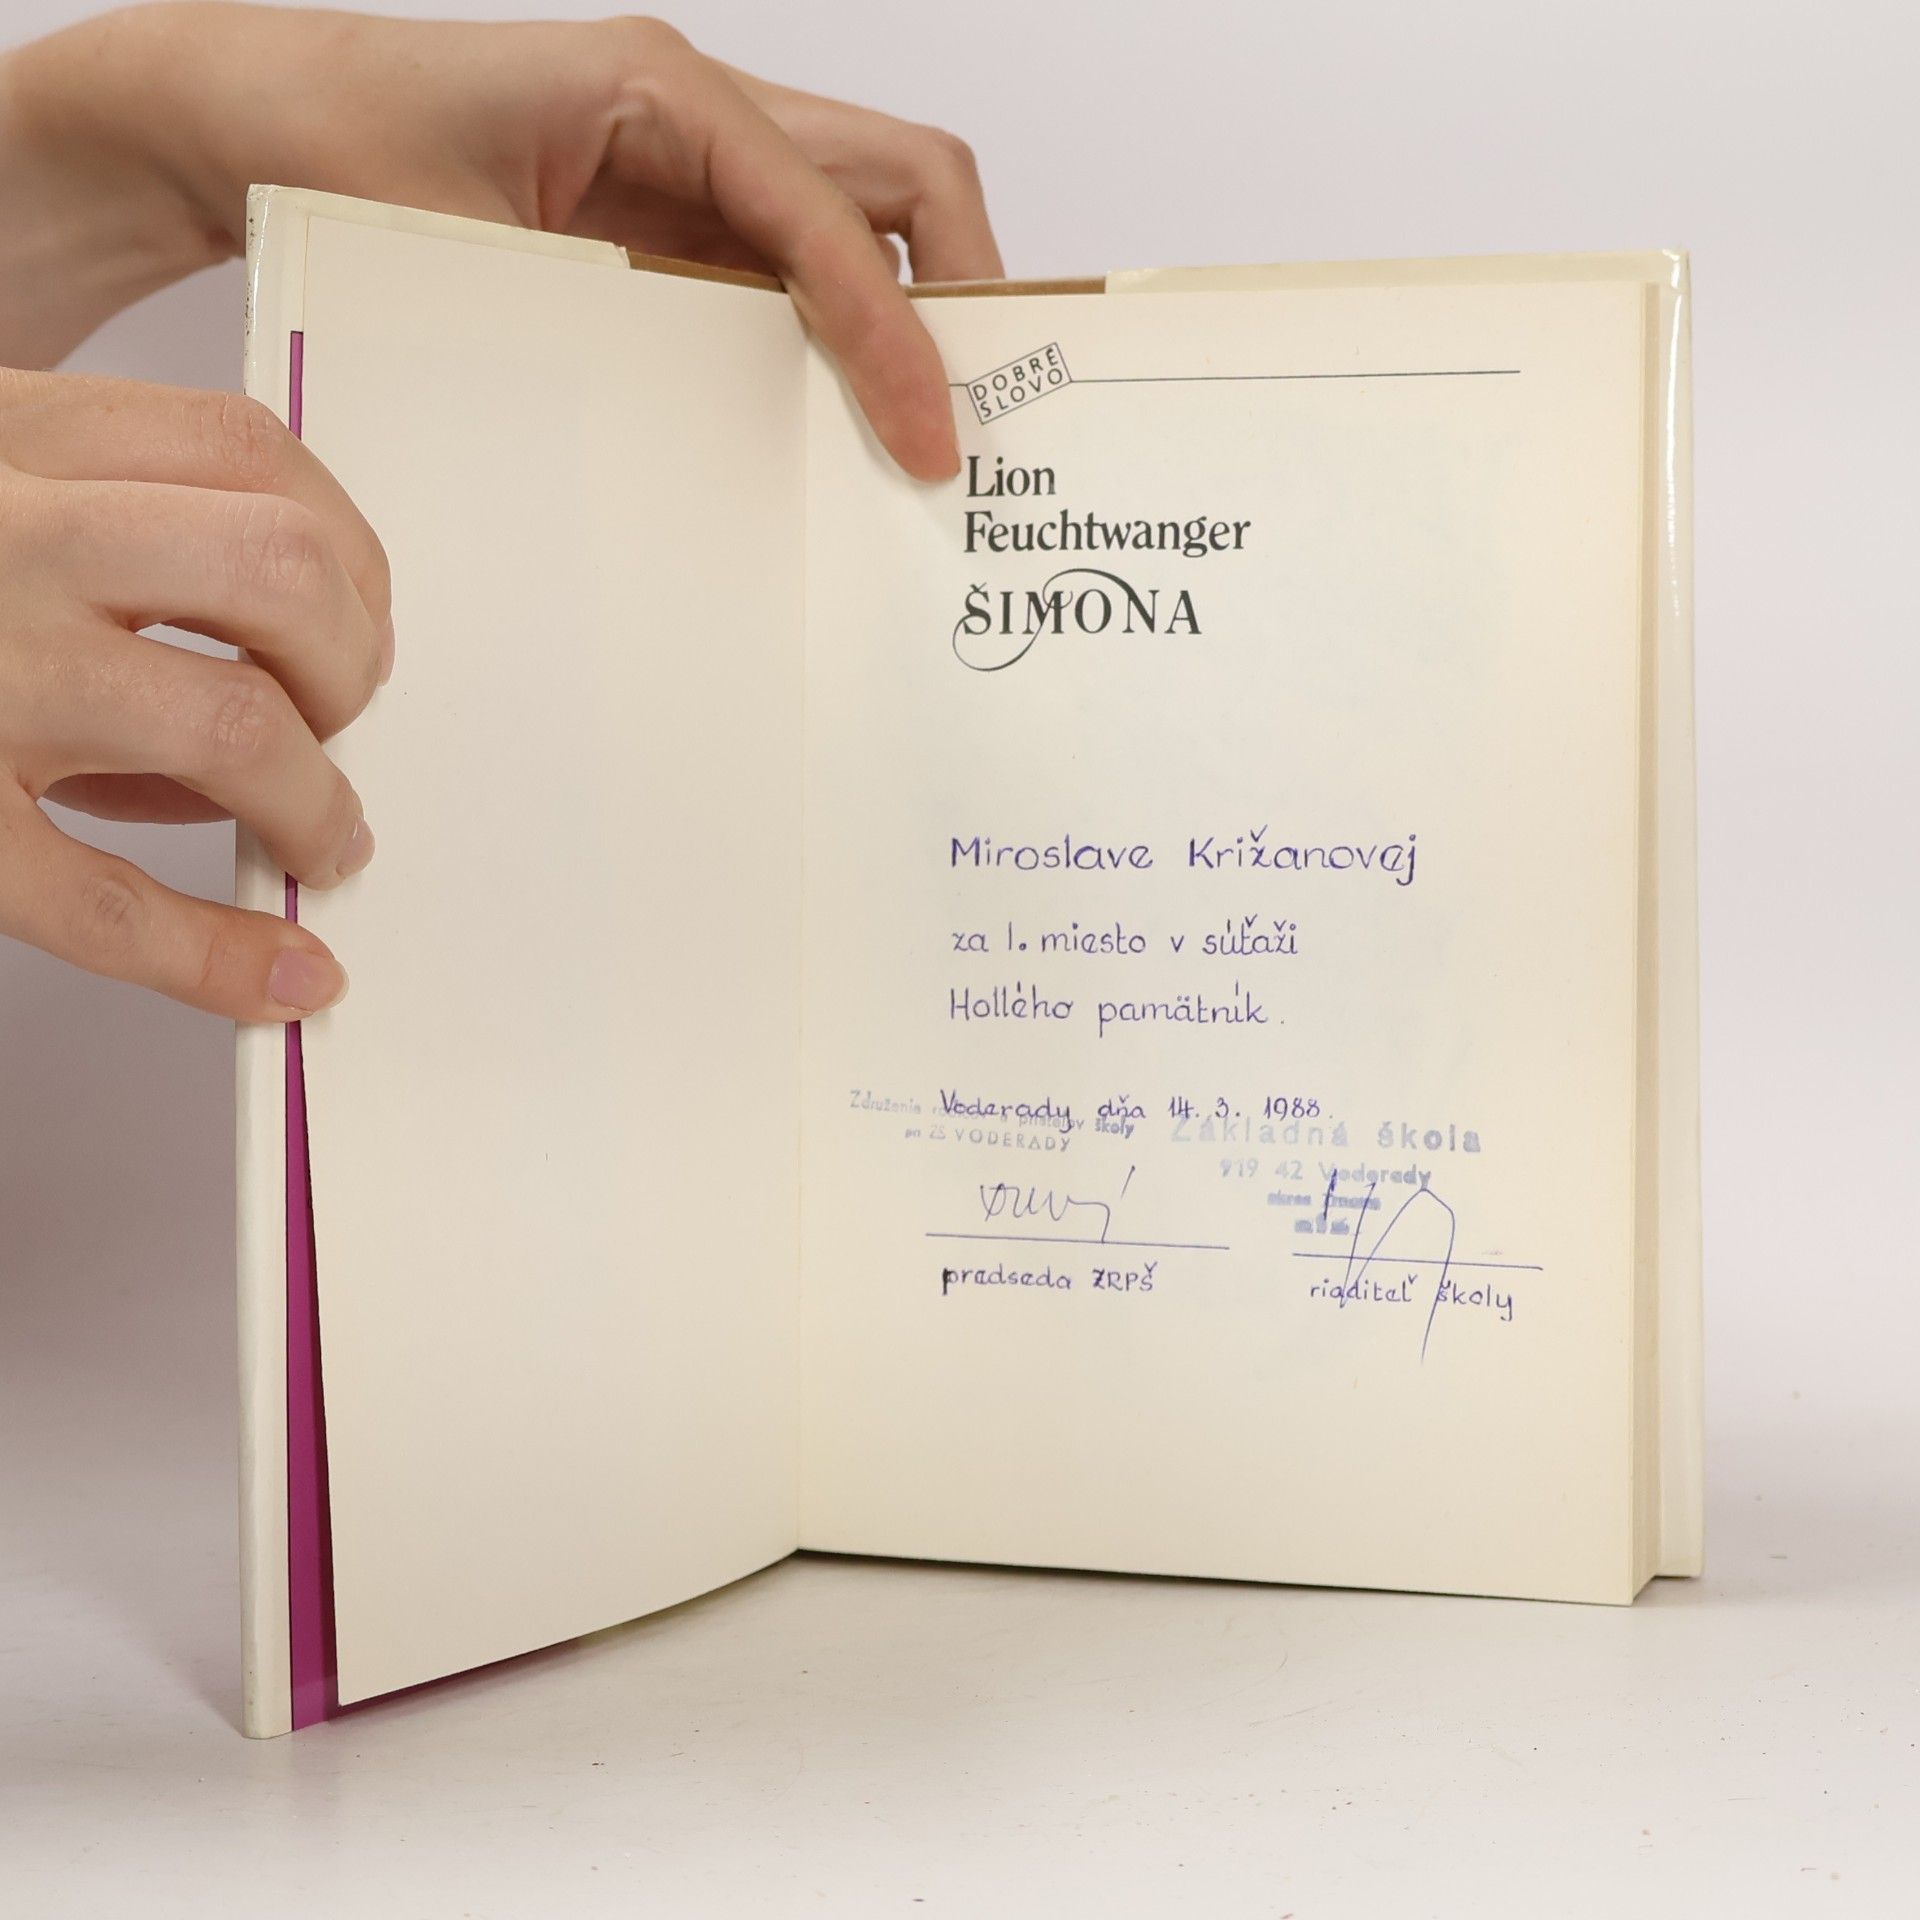 DOBRÉ
SLOVO
Lion
Feuchtwanger
ŠIMONA
Miroslave Križanovej
za 1. miesto v súťaži
Hollého pamätník.
Voderady dňa 14. 3. 1988.
Združenie rodičov a priateľov školy
pri ZŠ VODERADY
Základná škola
919 42 Voderady
okres Trnava
predseda ZRPŠ
riaditeľ školy